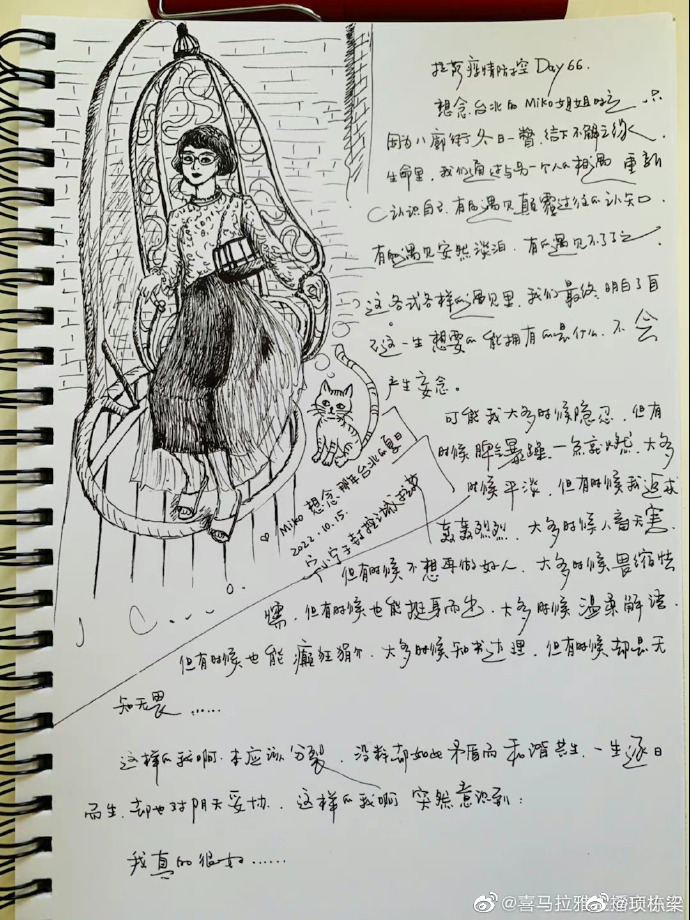 拉萨疫情防控 Day 66.
想念台北的Miko姐姐
因为八廓街冬日一瞥,结下不解之缘
生命里,我们通过与另一个人的相遇 重新
认识自己.有的遇见颠覆过往的认知
有的遇见安然淡泊.有的遇见不了了之.
这各式各样的遇见里,我们最终明白了自
己这一生想要的能拥有的是什么.不会
产生妄念。
可能我大多时候隐忍,但有
时候脾气暴躁一点就燃.大多
时候平淡,但有时候我追求
轰轰烈烈,大多时候人畜无害,
但有时候不想再做好人.大多时候畏缩怯
懦,但有时候也能挺身而出.大多时候温柔解语.
但有时候也能癫狂狷介.大多时候知书达理.但有时候却是无
知无畏……
这样的我啊.本应该分裂,没料却如此矛盾而和谐共生.一生逐日
而生.却也对阴天妥协.这样的我啊 突然意识到:
我真的很好……
Miko 想念那年台北的夏日
2022.10.15.
宁小宁于封控之城拉萨
@喜马拉雅主播项栋梁